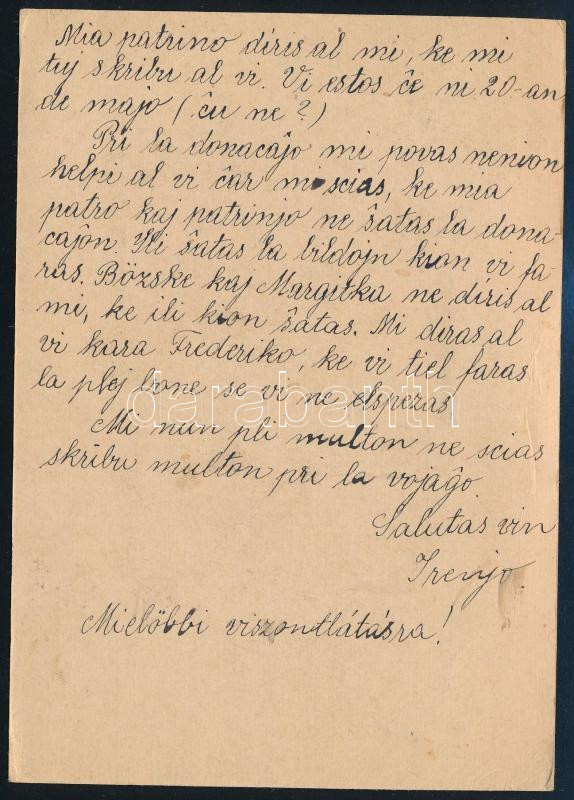 Mia patrino diris al mi, ke mi
tuj skribu al vi. Vi estos ĉe ni 20-an
de majo (ĉu ne?)
Pri la donacaĵo mi povas nenion
helpi al vi ĉar mi scias, ke mia
patro kaj patrinjo ne ŝatas la dona-
caĵon. Ili ŝatas la bildojn kion vi fa-
ras. Bözske kaj Margitka ne diris al
mi, ke ili kion ŝatas. Mi diras al
vi kara Frederiko, ke vi tiel faras
la plej bone se vi ne elspezas
darabanth
Mi nun pli multon ne scias
skribu multon pri la vojaĝo.
Salutas vin
Irenjo.
Mielöbbi viszontlátásra!